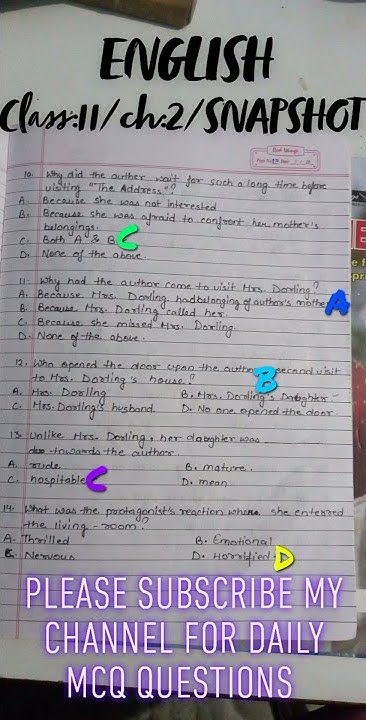 ENGLISH
Class:11/ch:2/SNAPSHOT
10. Why did the author wait for such a long time before
visiting "The Address"?
A. Because she was not interested
B. Because she was afraid to confront her mother's
belongings.
C. Both A & B C
D. None of the above.
11. Why had the author come to visit Mrs. Dorling?
A. Because Mrs. Dorling had belonging of author's mother A
B. Because Mrs. Dorling called her.
C. Because she missed Mrs. Dorling.
D. None of the above.
12. Who opened the door upon the author second visit
to Mrs. Dorling's house? B
A. Mrs. Dorling B. Mrs. Dorling's Daughter
C. Mrs. Dorling's husband. D. No one opened the door.
13. Unlike Mrs. Dorling, her daughter was
towards the author.
A. rude B. mature.
C. hospitable C D. mean
14. What was the protagonist's reaction when she enterred
the living-room?
A. Thrilled B. Emotional
C. Nervous D. Horrified. D
PLEASE SUBSCRIBE MY
CHANNEL FOR DAILY
MCQ QUESTIONS